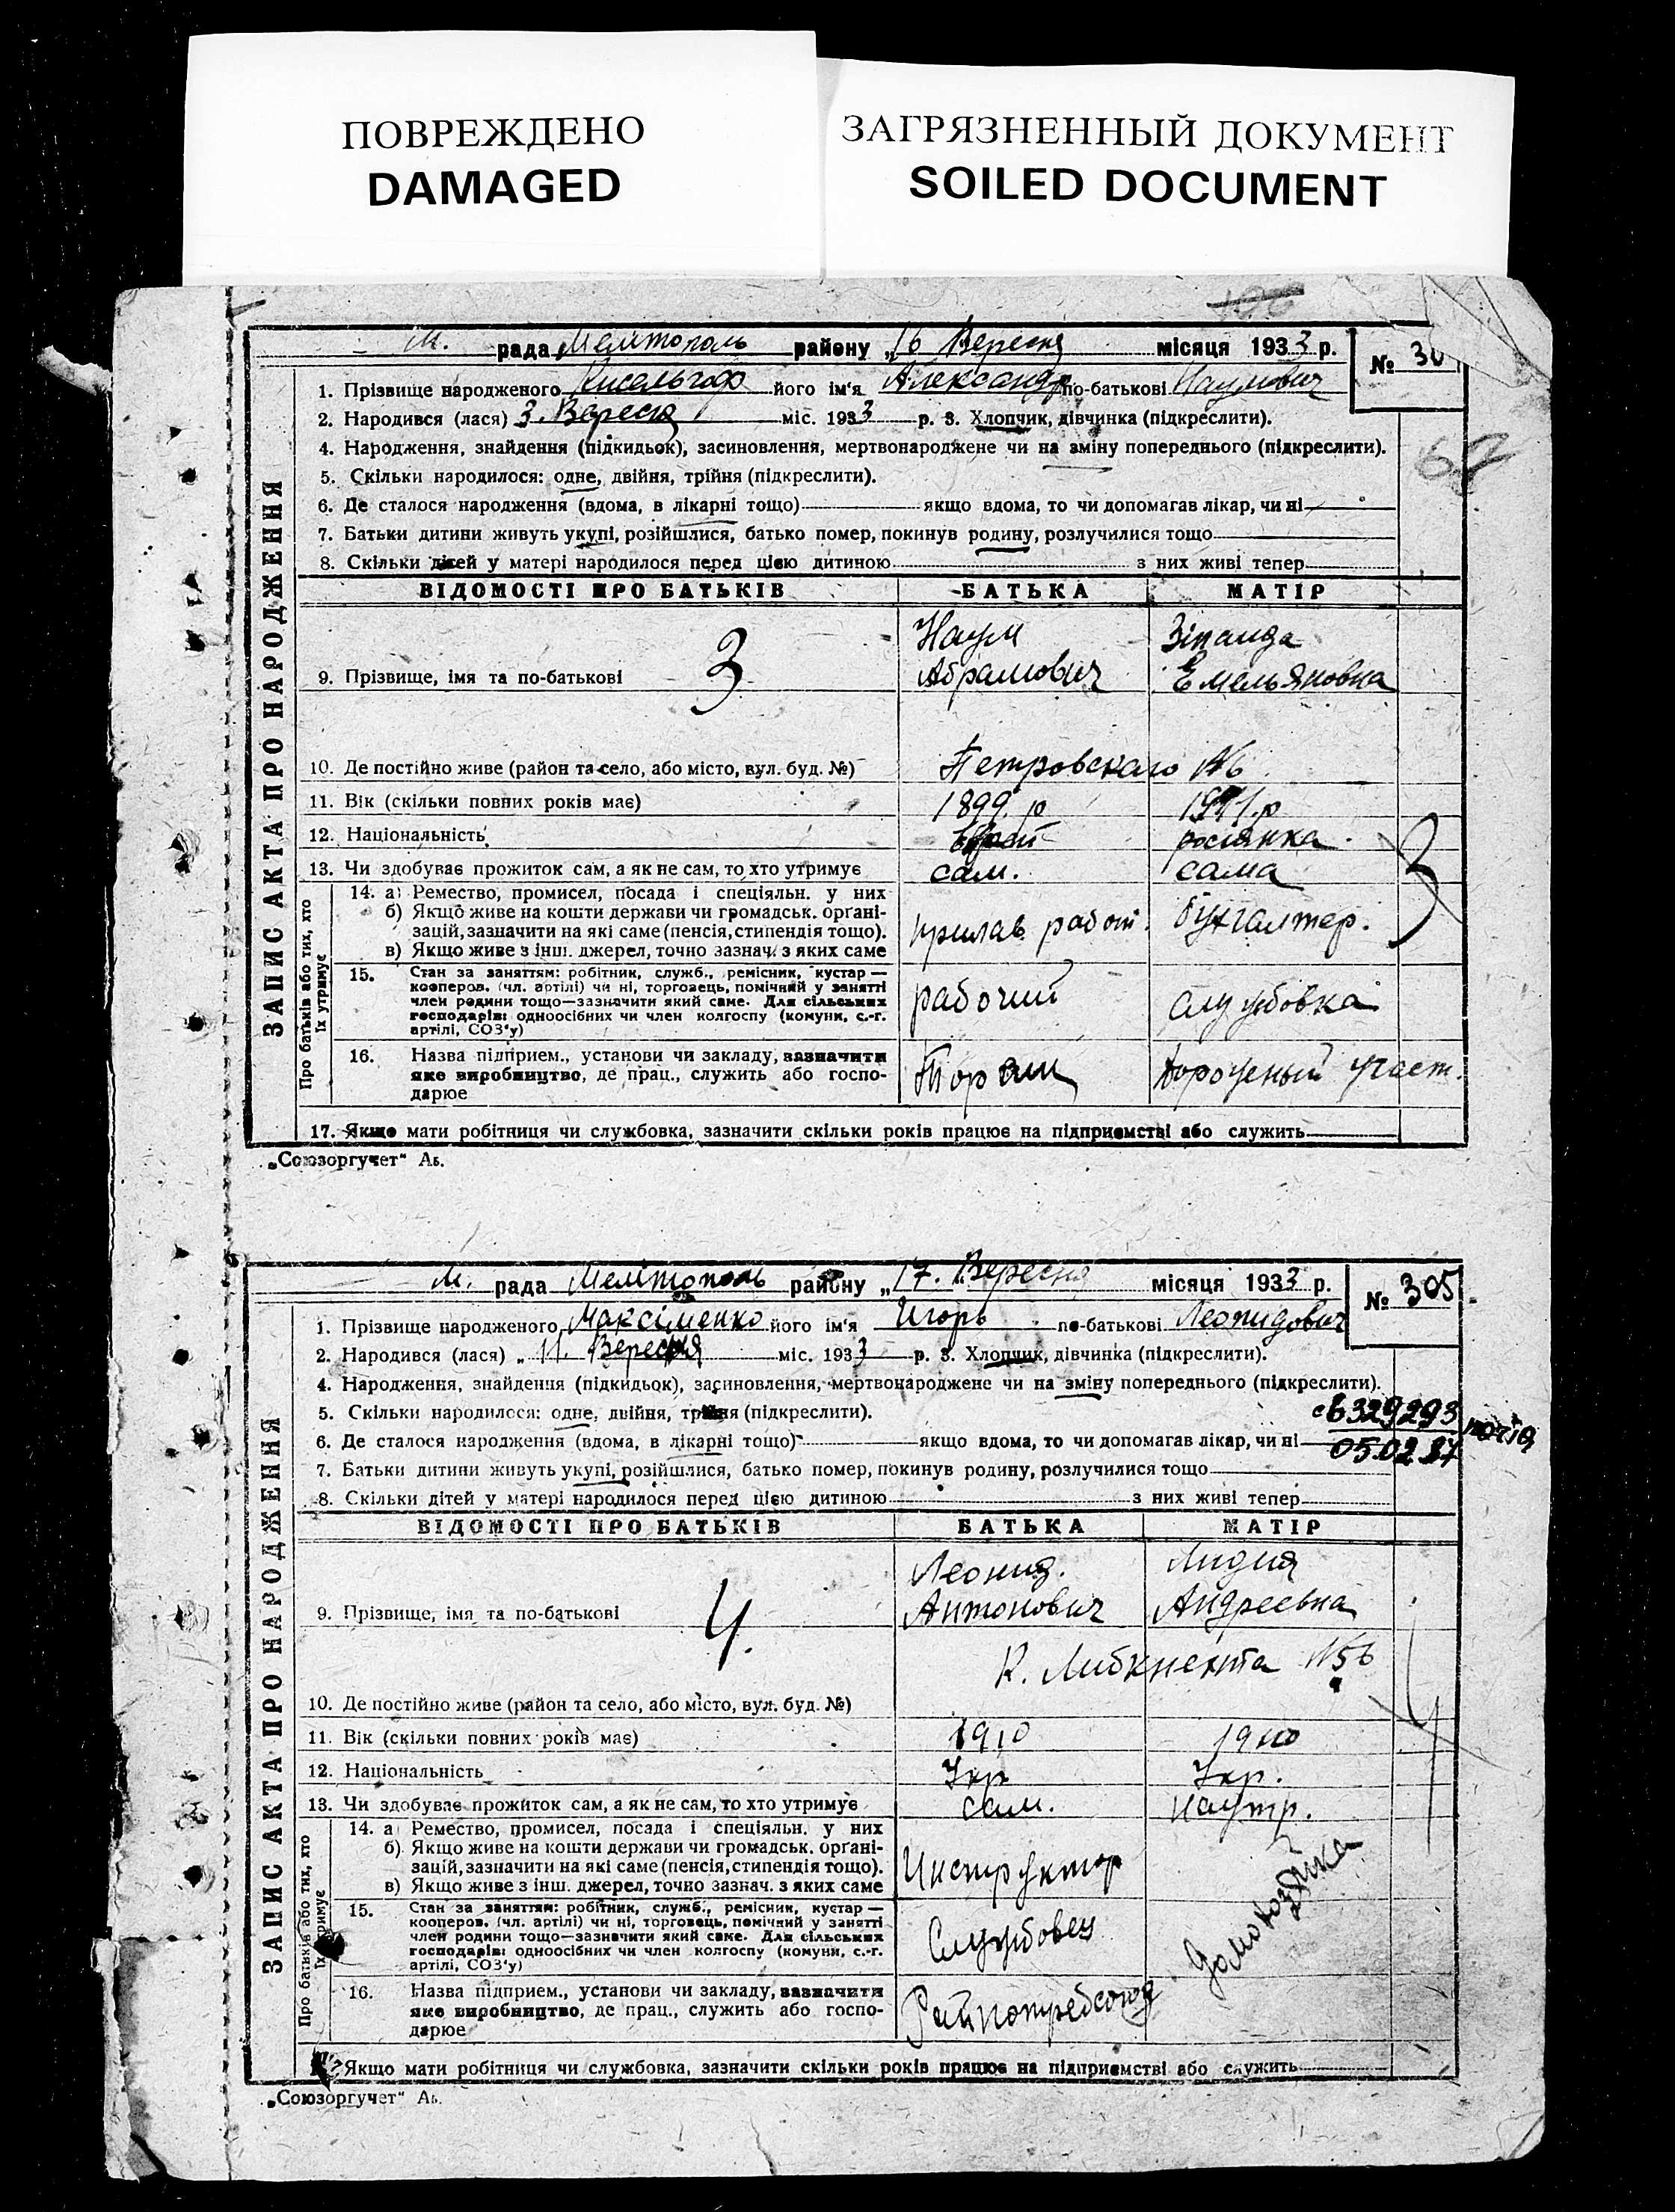 ПОВРЕЖДЕНО
DAMAGED
ЗАГРЯЗНЕННЫЙ ДОКУМЕНТ
SOILED DOCUMENT
ЗАПИС АКТА ПРО НАРОДЖЕННЯ
м. рада Мелітополь району „16 Вересня місяця 1933 р.
№ 30
1. Прізвище народженого його ім'я Александр по-батькові Наумович
2. Народився (лася) 3. Вересня міс. 1933 р. 3. Хлопчик, дівчинка (підкреслити).
4. Народження, знайдення (підкидьок), засиновлення, мертвонароджене чи на зміну попереднього (підкреслити).
67
5. Скільки народилося: одне, двійня, трійня (підкреслити).
6. Де сталося народження (вдома, в лікарні тощо) якщо вдома, то чи допомагав лікар, чи ні
7. Батьки дитини живуть укупі, розійшлися, батько помер, покинув родину, розлучилися тощо
8. Скільки дітей у матері народилося перед цією дитиною з них живі тепер
ВІДОМОСТІ ПРО БАТЬКІВ БАТЬКА МАТІР
Наум Зінаида
9. Прізвище, імя та по-батькові 3 Абрамович Емельяновна
10. Де постійно живе (район та село, або місто, вул. буд. №) Петровского №6
11. Вік (скільки повних років має) 1899. р 1911.р
12. Національність еврей росіянка
13. Чи здобуває прожиток сам, а як не сам, то хто утримує сам. сама
3
Про батьків або тих, хто їх утримує
14. а) Ремество, промисел, посада і спеціяльн. у них
б) Якщо живе на кошти держави чи громадськ. орґані-
зацій, зазначити на які саме (пенсія, стипендія тощо). прилав. работ. бухгалтер.
в) Якщо живе з інш. джерел, точно зазнач. з яких саме
15. Стан за заняттям: робітник, служб., ремісник, кустар —
кооперов. (чл. артілі) чи ні, торговець, помічний у занятті
член родини тощо—зазначити який саме. Для сільських
господарів: одноосібних чи член колгоспу (комуни, с.-г.
артілі, СОЗ'у)
рабочий службовка
16. Назва підприєм., установи чи закладу, зазначити
яке виробництво, де прац., служить або госпо-
дарюе
участ.
17. Якщо мати робітниця чи службовка, зазначити скільки років працює на підприємстві або служить
„Союзоргучет" Аь.
ЗАПИС АКТА ПРО НАРОДЖЕННЯ
м. рада Мелітополь району „17. Вересня місяця 1933 р.
№ 305
1. Прізвище народженого Максіменко його ім'я Игорь по-батькові Леонидович
2. Народився (лася) „ 11. Вересня міс. 1933 р. 3. Хлопчик, дівчинка (підкреслити).
4. Народження, знайдення (підкидьок), засиновлення, мертвонароджене чи на зміну попереднього (підкреслити).
5. Скільки народилося: одне, двійня, трійня (підкреслити).
св 329293
6. Де сталося народження (вдома, в лікарні тощо) якщо вдома, то чи допомагав лікар, чи ні
05.02.87
7. Батьки дитини живуть укупі, розійшлися, батько помер, покинув родину, розлучилися тощо
8. Скільки дітей у матері народилося перед цією дитиною з них живі тепер
ВІДОМОСТІ ПРО БАТЬКІВ БАТЬКА МАТІР
Леонид. Лидия
9. Прізвище, імя та по-батькові 4. Антонович Андреевна
К. Либкнехта №56
10. Де постійно живе (район та село, або місто, вул. буд. №)
4
11. Вік (скільки повних років має) 1910 1910
12. Національність Укр Укр.
13. Чи здобуває прожиток сам, а як не сам, то хто утримує сам. на утр.
Про батьків або тих, хто їх утримує
14. а) Ремество, промисел, посада і спеціяльн. у них
б) Якщо живе на кошти держави чи громадськ. орґані-
зацій, зазначити на які саме (пенсія, стипендія тощо). Инструктор
в) Якщо живе з інш. джерел, точно зазнач. з яких саме
15. Стан за заняттям: робітник, служб., ремісник, кустар —
кооперов. (чл. артілі) чи ні, торговець, помічний у занятті
член родини тощо—зазначити який саме. Для сільських
господарів: одноосібних чи член колгоспу (комуни, с.-г.
артілі, СОЗ'у)
Службовец
домохозяйка
16. Назва підприєм., установи чи закладу, зазначити
яке виробництво, де прац., служить або госпо-
дарюе
Райпотребсоюз
17. Якщо мати робітниця чи службовка, зазначити скільки років працює на підприємстві або служить
„Союзоргучет" Аь.